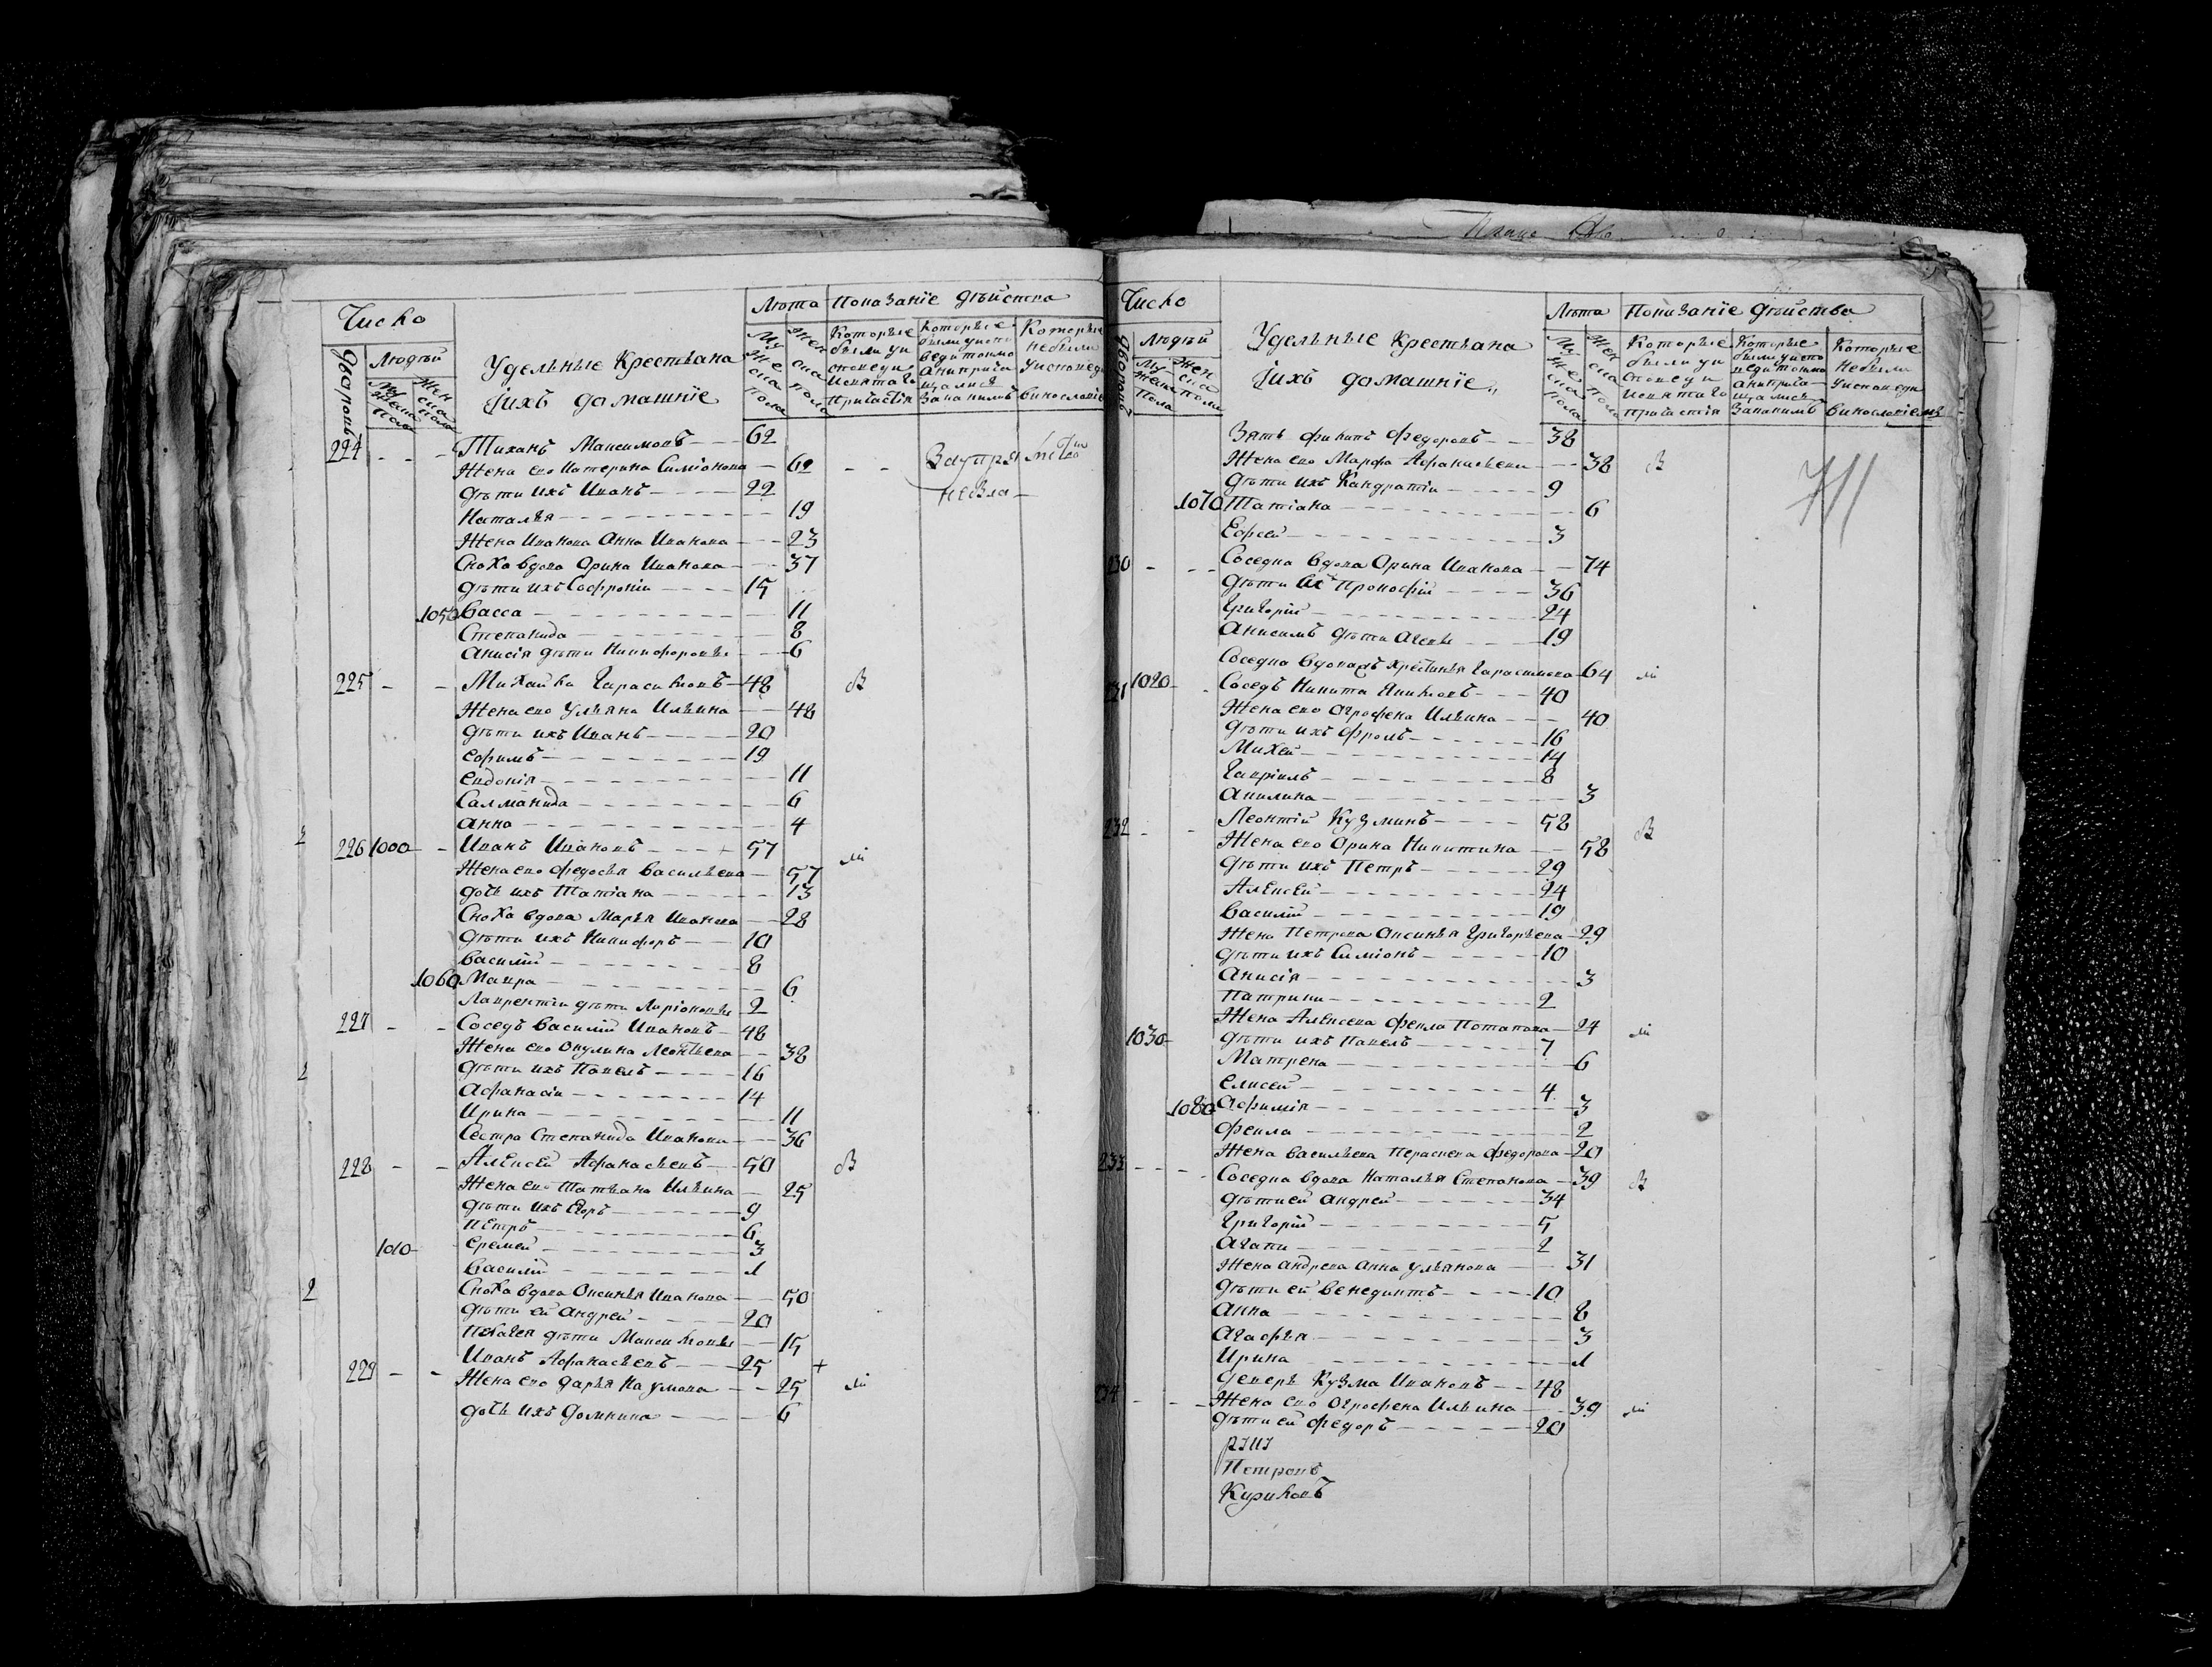 Число
Дворовъ
Людѣй
Мужеска пола
Женска пола
Удельные Крестьяна
Iихъ домашнiе
Лѣта
Мужеска пола
Женска пола
Показанiе дѣйства
Которые были уисповеди исвятаго Пригастiя
Которые были уисповеди токмо анипригащалися Заканимъ
Которые небыли уисповеди
224 - - Тиханъ Максимовъ 62
Жена ево Катерина Симiонова 62 Заупрямство
дѣти ихъ Иванъ 22
Наталья 19
Жена Иванова Анна Иванова 23
Сноха вдова Орина Иванова 37
дѣти ихъ Софронiи 15
1050 Васса 11
Степанида 8
Анисiя дѣти Никифоровы 6
225 - - Михайла Гарасимовъ 48 В
Жена ево Ульяна Ильина 48
дѣти ихъ Иванъ 20
Ефимъ 19
Евдокiя 11
Салманида 6
Анна 4
226 1000 - Иванъ Ивановъ 57 м
Жена ево Федосья Васильева 57
дочь ихъ Татiана 13
Сноха вдова Марья Иванова 28
дѣти ихъ Никифоръ 10
Василiй 8
1060 Мавра 6
Лаврентiи дѣти Ларiоновы 2
227 - - Соседъ Василiй Ивановъ 48
Жена ево Окулина Леонтьева 38
дѣти ихъ Павелъ 16
Афанасiи 14
Ирина 11
Сестра Степанида Иванова 36
228 - - Алексей Афанасьевъ 50 В
Жена ево Татьяна Ильина 25
дѣти ихъ Егоръ 9
Петръ 6
1010 Еремей 3
Василiй 1
2 Сноха вдова Оксинья Иванова 50
дѣти ей Андрей 20
Пелагея дѣти Максимовы 15
229 - - Иванъ Афанасьевъ 25 +
Жена ево Дарья Наумова 25 м
дочь ихъ Домника 6
Число
Дворовъ
Людѣй
Мужеска пола
Женска пола
Удельные Крестьяна
Iихъ домашнiе
Лѣта
Мужеска пола
Женска пола
Показанiе дѣйства
Которые были уисповеди исвятаго пригастiя
Которые были уисповеди токмо анипригащались Заканимъ
Которые небыли уисповеди
Зять Филипъ Федоровъ 38
Жена ево Марфа Афанасьева 38 В
дѣти ихъ Кандратiи 9
1070 Татiана 6
Ефсей 3
711
230 - - Соседка вдова Орина Иванова 74
дѣти ея Прокофiй 36
Григорiй 24
Анисимъ 19
Соседка вдова Хрестинья Гарасимова 64 м
231 1020 - Соседъ Никита Якимовъ 40
Жена ево Агрофена Ильина 40
дѣти ихъ Фролъ 16
Михей 14
Гаврiилъ 8
Акилина 3
232 - - Леонтiй Кузминъ 58 В
Жена ево Орина Никитина 58
дѣти ихъ Петръ 29
Алексей 24
Василiй 19
Жена Петрова Оксинья Григорьева 29
дѣти ихъ Симiонъ 10
Анисiя 3
Патрики 2
Жена Алексева Фекла Потапова 24 м
1030 дѣти ихъ Павелъ 7
Матрена 6
Елисей 4
1080 Афимiя 3
Фекла 2
Жена Васильева Пераскева Федорова 20
233 - - Соседка вдова Наталья Степанова 39 В
дѣти ей Андрей 34
Григорiй 5
Агапи 2
Жена Андрева Анна Ульянова 31
дѣти ей Венедиктъ 10
Анна 8
Агафья 3
Ирина 1
Деверь Кузма Ивановъ 48
234 - - Жена ево Огрофена Ильина 39 м
дѣти ей Федоръ 20
Петровъ
Куриловъ